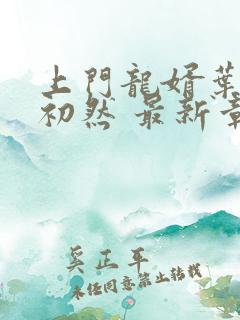 上門龍婿葉
初然 最新章
奚正平
未任同意禁止轉載